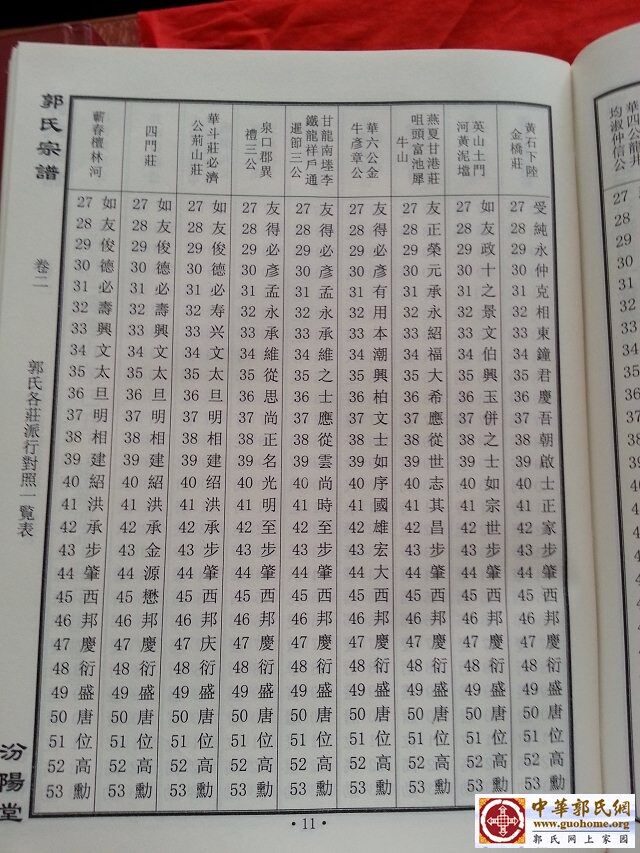 郭氏宗譜
卷二
郭氏各莊派行對照一覧表
汾陽堂
華四龍井
均淑仲信公
黃石下陸
金橋莊
英山土門
河黃泥壋
燕夏甘港莊
咀頭富池犀
牛山
華六公金
牛彥章公
甘龍南墶李
鐵龍样戶通
暹節三公
泉口郡異
禮三公
華斗莊必濟
公荊山莊
四門莊
蘄春檀林河
27 如 27 如 27 如 27 友 27 友 27 友 27 友 27 如 27 受
28 友 28 友 28 友 28 得 28 得 28 得 28 正 28 友 28 純
29 俊 29 俊 29 俊 29 必 29 必 29 必 29 榮 29 政 29 永
30 德 30 德 30 德 30 彥 30 彥 30 彥 30 元 30 十 30 仲
31 必 31 必 31 必 31 孟 31 孟 31 有 31 承 31 之 31 克
32 壽 32 壽 32 寿 32 永 32 永 32 用 32 永 32 景 32 相
33 興 33 興 33 兴 33 承 33 承 33 本 33 紹 33 文 33 東
34 文 34 文 34 文 34 維 34 維 34 潮 34 福 34 伯 34 鐘
35 太 35 太 35 太 35 從 35 之 35 興 35 大 35 興 35 君
36 旦 36 旦 36 旦 36 思 36 士 36 柏 36 希 36 玉 36 慶
37 明 37 明 37 明 37 尚 37 應 37 文 37 應 37 併 37 吾
38 相 38 相 38 相 38 正 38 從 38 士 38 從 38 之 38 朝
39 建 39 建 39 建 39 名 39 雲 39 如 39 世 39 士 39 啟
40 紹 40 紹 40 绍 40 光 40 尚 40 序 40 志 40 如 40 士
41 洪 41 洪 41 洪 41 明 41 時 41 國 41 其 41 宗 41 正
42 承 42 承 42 承 42 至 42 至 42 雄 42 昌 42 世 42 家
43 步 43 金 43 步 43 步 43 步 43 宏 43 步 43 步 43 步
44 肇 44 源 44 肇 44 肇 44 肇 44 大 44 肇 44 肇 44 肇
45 西 45 懋 45 西 45 西 45 西 45 西 45 西 45 西 45 西
46 邦 46 邦 46 邦 46 邦 46 邦 46 邦 46 邦 46 邦 46 邦
47 慶 47 慶 47 庆 47 慶 47 慶 47 慶 47 慶 47 慶 47 慶
48 衍 48 衍 48 衍 48 衍 48 衍 48 衍 48 衍 48 衍 48 衍
49 盛 49 盛 49 盛 49 盛 49 盛 49 盛 49 盛 49 盛 49 盛
50 唐 50 唐 50 唐 50 唐 50 唐 50 唐 50 唐 50 唐 50 唐
51 位 51 位 51 位 51 位 51 位 51 位 51 位 51 位 51 位
52 高 52 高 52 高 52 高 52 高 52 高 52 高 52 高 52 高
53 勳 53 勳 53 勳 53 勳 53 勳 53 勳 53 勳 53 勳 53 勳
·11·
中華郭氏網
www.guohome.org
郭氏网上家园